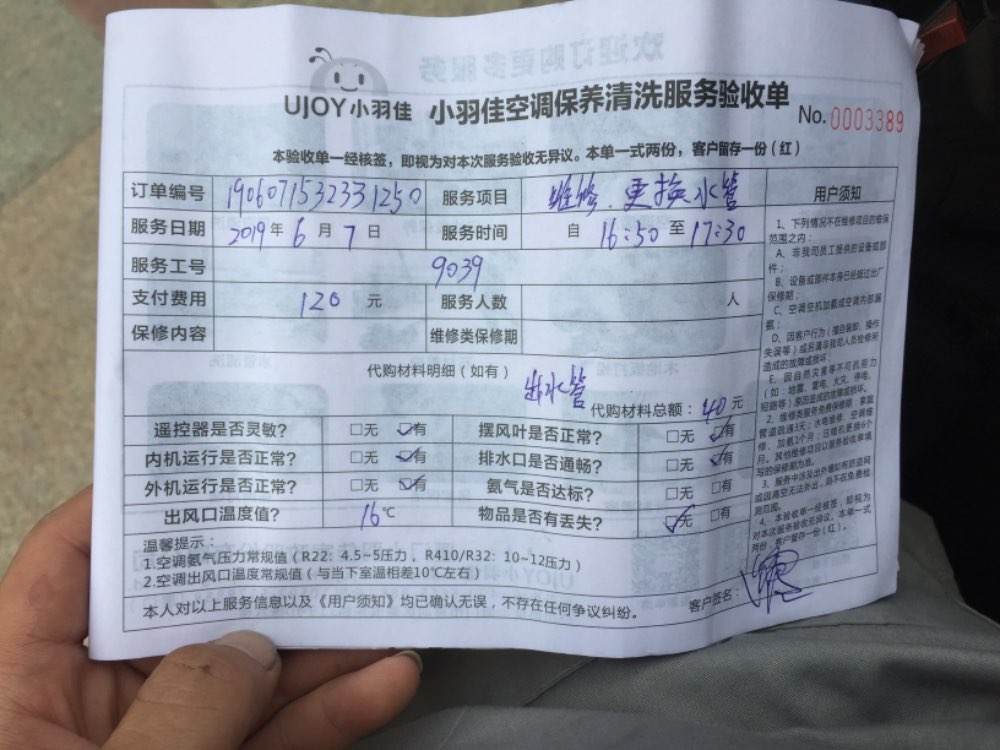 UJOY小羽佳 小羽佳空调保养清洗服务验收单
No. 0003389
本验收单一经核签，即视为对本次服务验收无异议。本单一式两份，客户留存一份（红）
订单编号 1906071532331250 服务项目 维修、更换水管
服务日期 2019年6月7日 服务时间 自 16:50 至 17:30
服务工号 9039
支付费用 120 元 服务人数 人
保修内容 维修类保修期
代购材料明细（如有） 出水管 代购材料总额：40元
遥控器是否灵敏？ □无 □有 摆风叶是否正常？ □无 □有
内机运行是否正常？ □无 □有 排水口是否通畅？ □无 □有
外机运行是否正常？ □无 □有 氨气是否达标？ □无 □有
出风口温度值？ 16℃ 物品是否有丢失？ □无 □有
温馨提示：
1.空调氨气压力常规值（R22：4.5~5压力，R410/R32：10~12压力）
2.空调出风口温度常规值（与当下室温相差10℃左右）
本人对以上服务信息以及《用户须知》均已确认无误，不存在任何争议纠纷。
客户签名：
用户须知
1、下列情况不在维修项目的维保
范围之内：
A、非我司员工提供的设备或部
件；
B、设备或部件本身已经超过出厂
保修期；
C、空调空机加氨或空调内部漏
氨；
D、因客户行为（擅自装卸、操作
失误等）或另请非我司人员检修所
造成的故障或损坏；
E、因自然灾害等不可抗拒力
（如：地震、雷电、火灾、停电、
短路等）原因造成的故障或损坏。
2、维修类服务免费保修期：家庭
管道疏通3天；水电维修、空调维
修、加氨1个月；压缩机更换6个
月。其他维修项目以服务验收单填
写的保修期为准。
3、服务中涉及出外墙如有防盗网
或因高空无法外出，则不在免费检
测范围。
4、本验收单一经核签，即视为
对本次服务验收无异议。本单一式
两份，客户留存一份（红）。